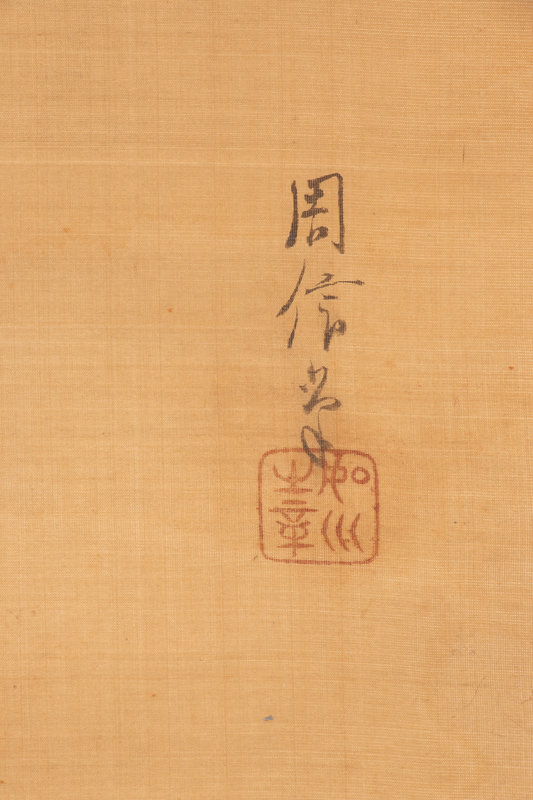 周信筆
如川
之章